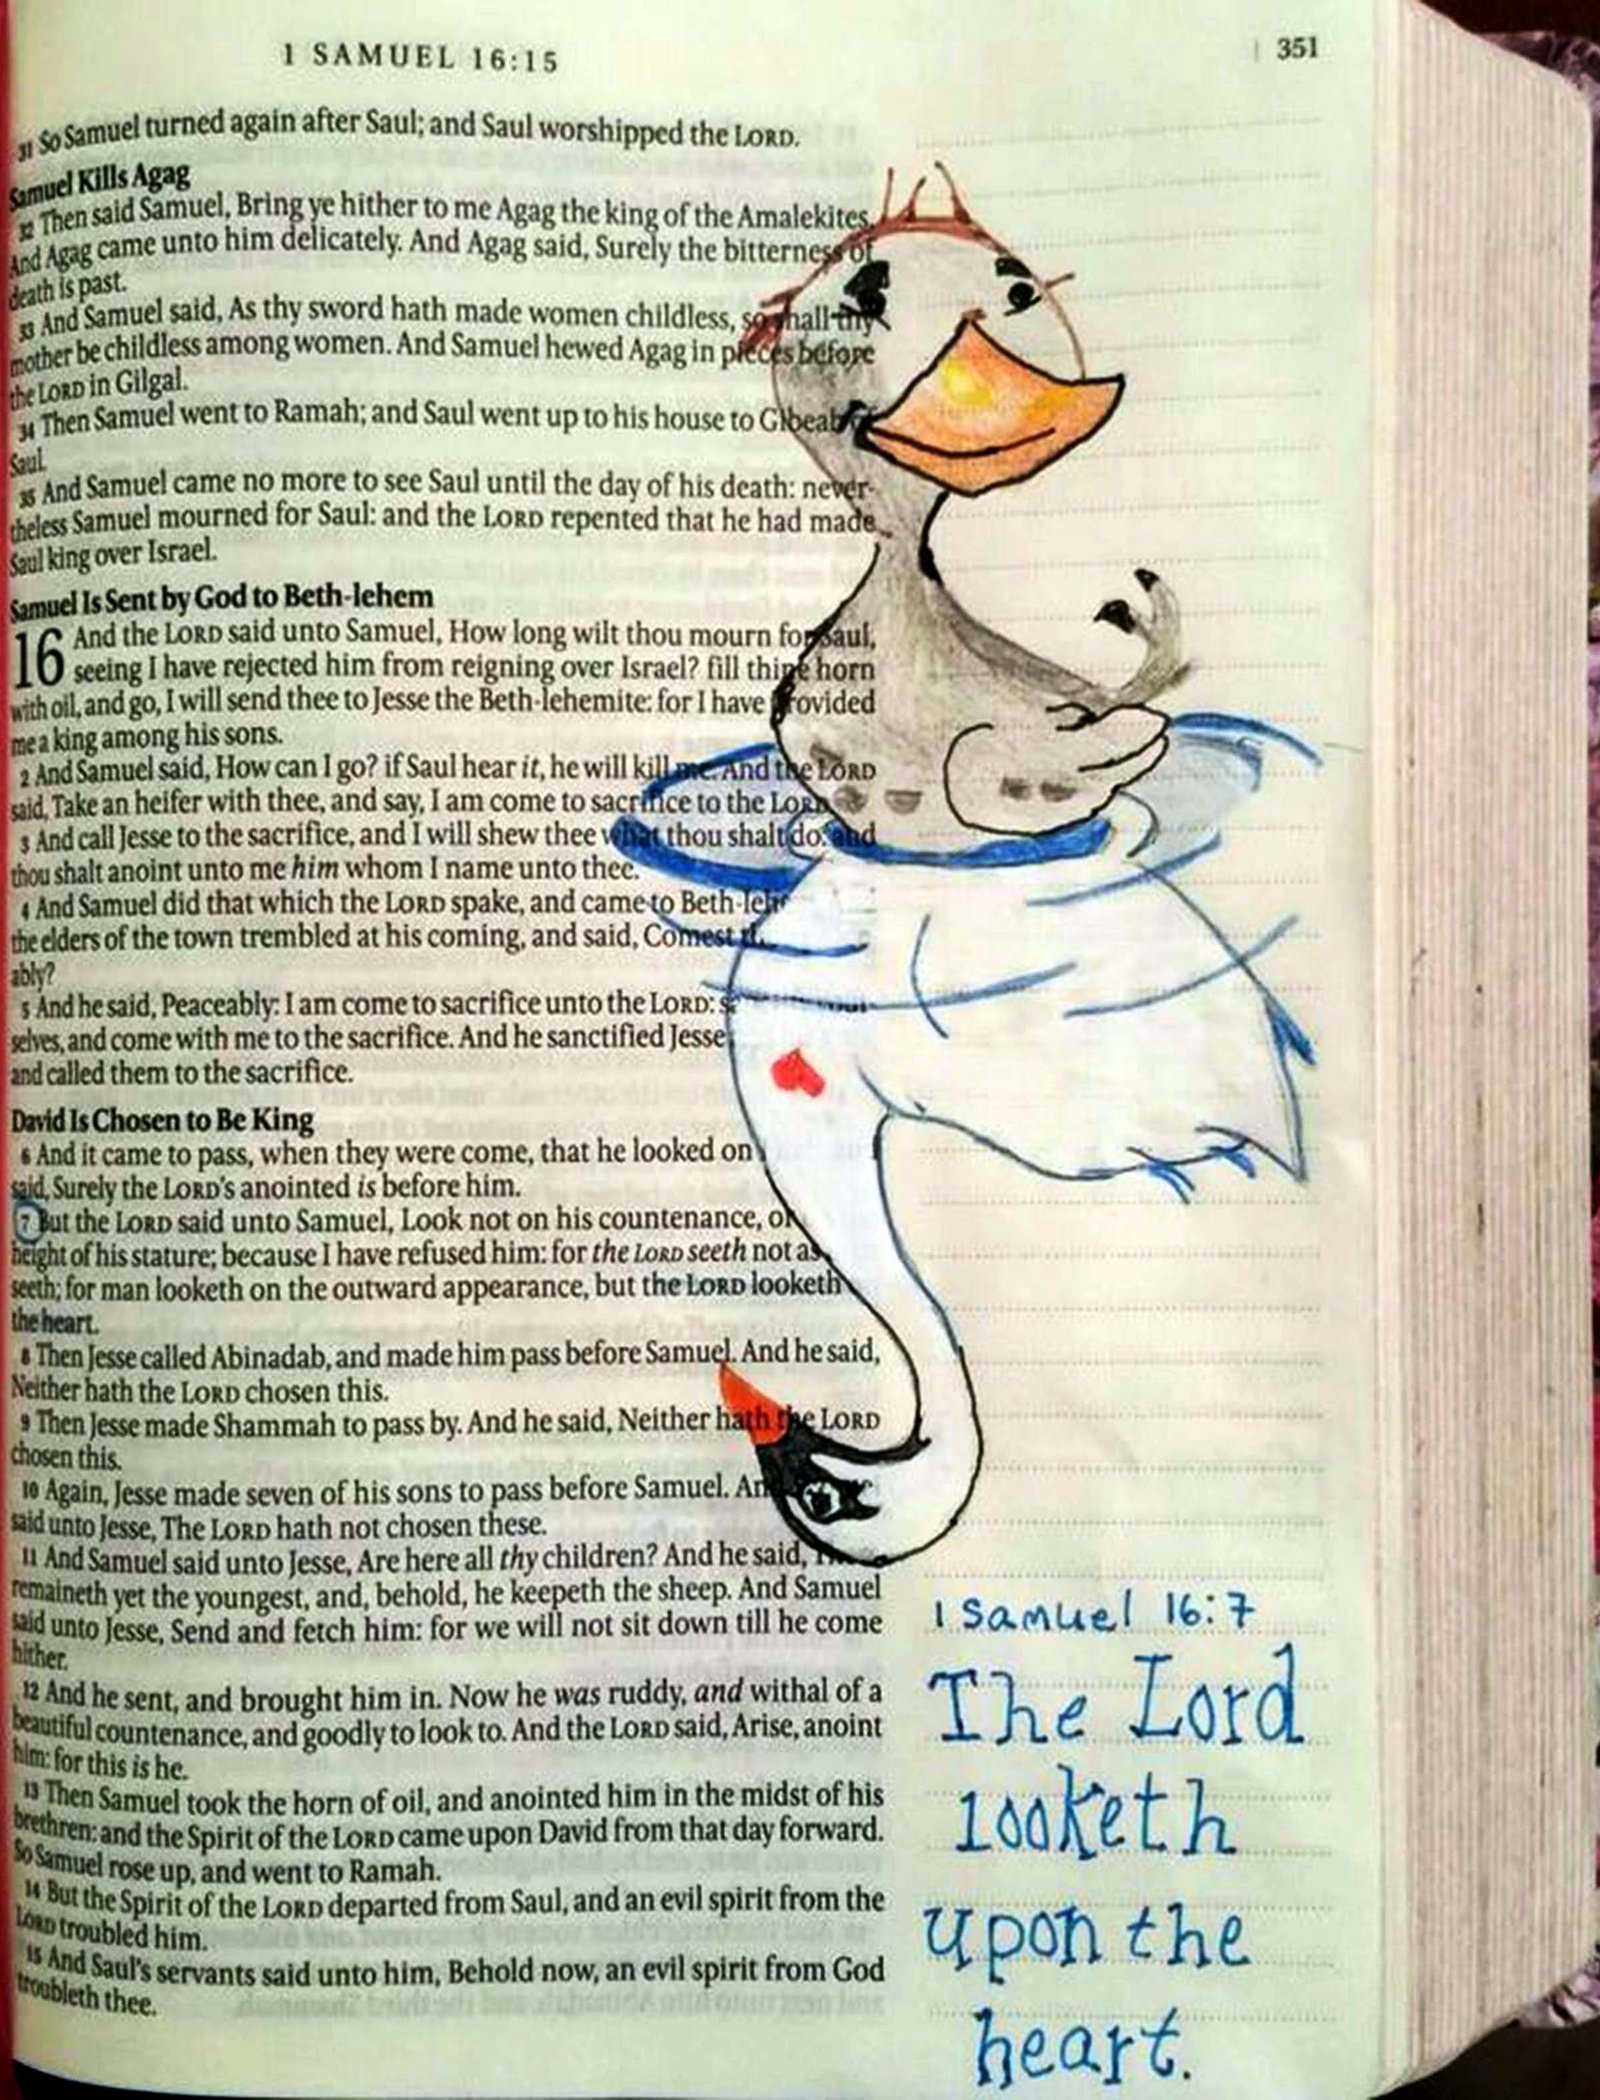 1 SAMUEL 16:15
351
31 So Samuel turned again after Saul; and Saul worshipped the LORD.
Samuel Kills Agag
32 Then said Samuel, Bring ye hither to me Agag the king of the Amalekites.
And Agag came unto him delicately. And Agag said, Surely the bitterness of
death is past.
33 And Samuel said, As thy sword hath made women childless, so shall thy
mother be childless among women. And Samuel hewed Agag in pieces before
the LORD in Gilgal.
34 Then Samuel went to Ramah; and Saul went up to his house to Gibeah of
Saul.
35 And Samuel came no more to see Saul until the day of his death: never-
theless Samuel mourned for Saul: and the LORD repented that he had made
Saul king over Israel.
Samuel Is Sent by God to Beth-lehem
16 And the LORD said unto Samuel, How long wilt thou mourn for Saul,
seeing I have rejected him from reigning over Israel? fill thine horn
with oil, and go, I will send thee to Jesse the Beth-lehemite: for I have provided
me a king among his sons.
2 And Samuel said, How can I go? if Saul hear it, he will kill me. And the LORD
said, Take an heifer with thee, and say, I am come to sacrifice to the LORD.
3 And call Jesse to the sacrifice, and I will shew thee what thou shalt do: and
thou shalt anoint unto me him whom I name unto thee.
4 And Samuel did that which the LORD spake, and came to Beth-lehem
the elders of the town trembled at his coming, and said, Comest
ably?
5 And he said, Peaceably: I am come to sacrifice unto the LORD:
selves, and come with me to the sacrifice. And he sanctified Jesse
and called them to the sacrifice.
David Is Chosen to Be King
6 And it came to pass, when they were come, that he looked on
said, Surely the LORD's anointed is before him.
7 But the LORD said unto Samuel, Look not on his countenance, or
height of his stature; because I have refused him: for the LORD seeth not as
seeth; for man looketh on the outward appearance, but the LORD looketh
the heart.
8 Then Jesse called Abinadab, and made him pass before Samuel. And he said,
Neither hath the LORD chosen this.
9 Then Jesse made Shammah to pass by. And he said, Neither hath the LORD
chosen this.
10 Again, Jesse made seven of his sons to pass before Samuel. And
said unto Jesse, The LORD hath not chosen these.
11 And Samuel said unto Jesse, Are here all thy children? And he said,
remaineth yet the youngest, and, behold, he keepeth the sheep. And Samuel
said unto Jesse, Send and fetch him: for we will not sit down till he come
hither.
12 And he sent, and brought him in. Now he was ruddy, and withal of a
beautiful countenance, and goodly to look to. And the LORD said, Arise, anoint
him: for this is he.
13 Then Samuel took the horn of oil, and anointed him in the midst of his
brethren: and the Spirit of the LORD came upon David from that day forward.
So Samuel rose up, and went to Ramah.
14 But the Spirit of the LORD departed from Saul, and an evil spirit from the
LORD troubled him.
15 And Saul's servants said unto him, Behold now, an evil spirit from God
troubleth thee.
1 Samuel 16:7
The Lord
looketh
upon the
heart.